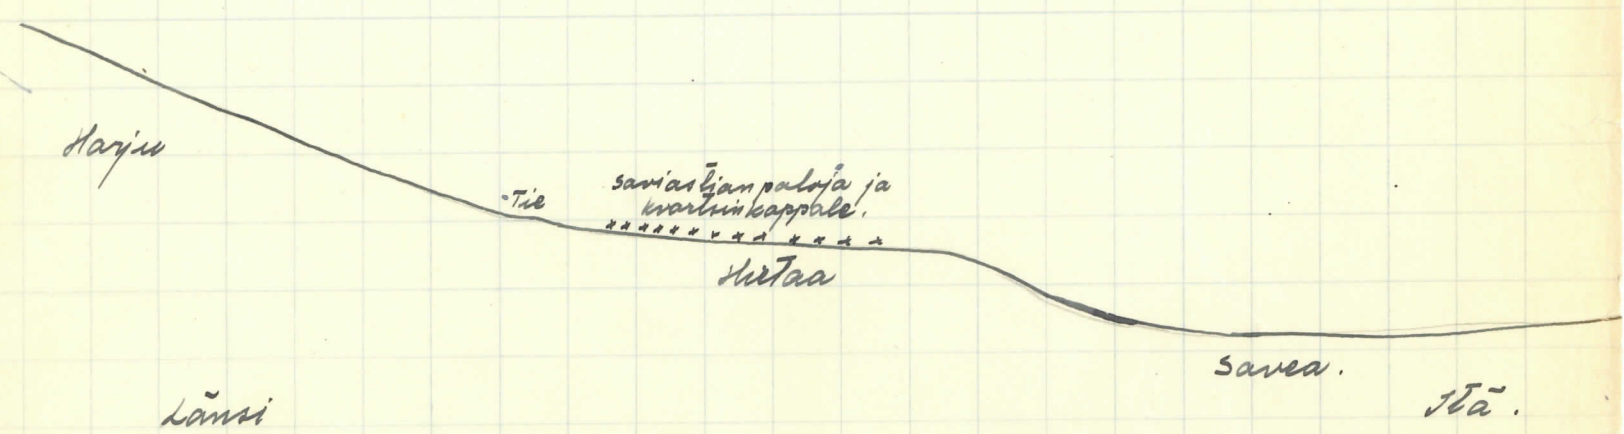 Harju
Tie
saviastian paloja ja
kvartsinkappale.
Hietaa
Savea.
Länsi
Itä.